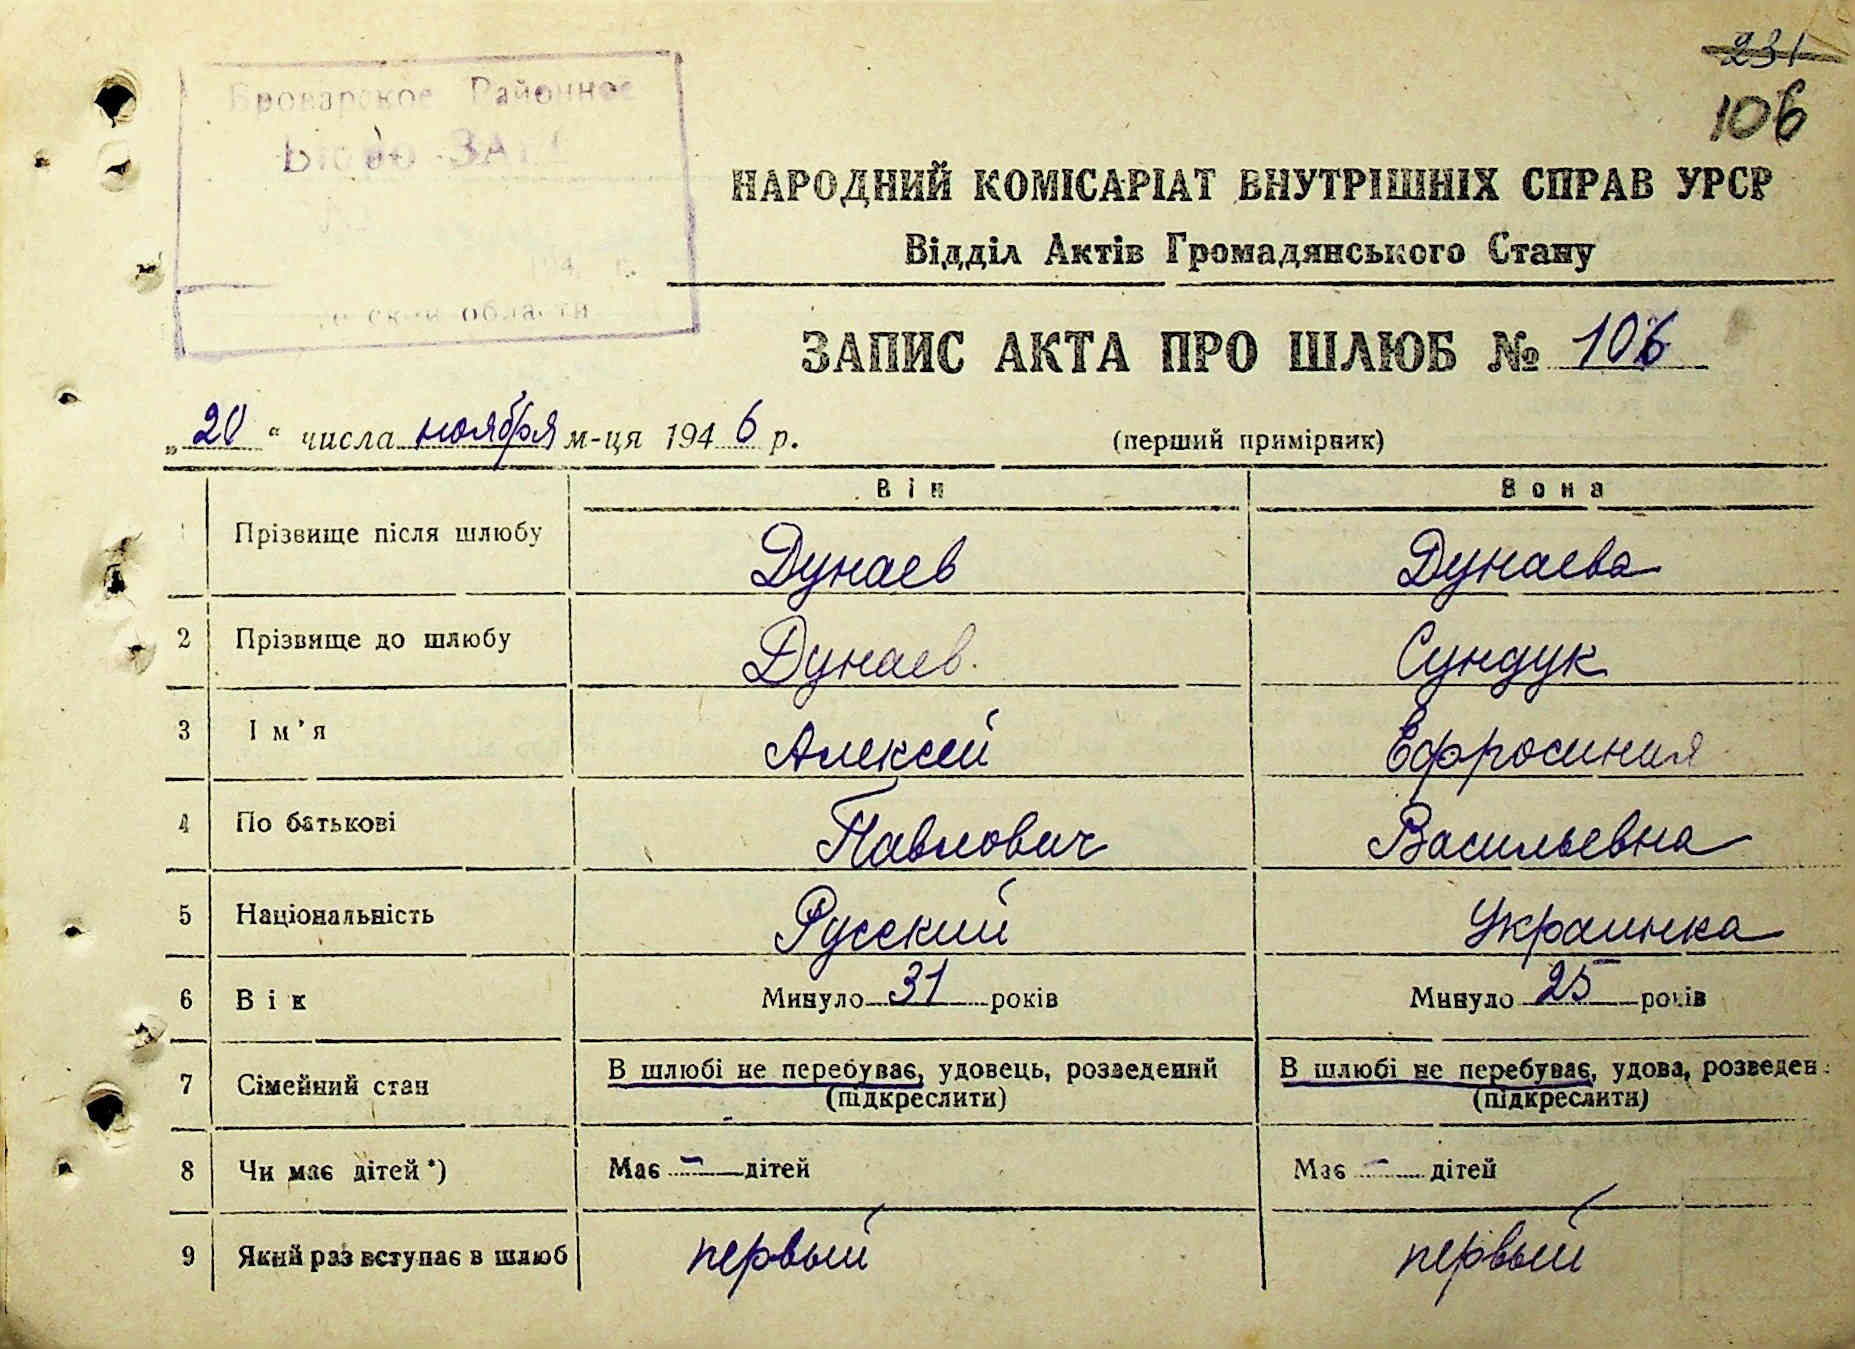 231
106
Броварское Районное
Бюро ЗАГС
области
НАРОДНИЙ КОМІСАРІАТ ВНУТРІШНІХ СПРАВ УРСР
Відділ Актів Громадянського Стану
ЗАПИС АКТА ПРО ШЛЮБ № 106
„20“ числа ноября м-ця 1946 р. (перший примірник)
Він Вона
1 Прізвище після шлюбу Дунаев Дунаева
2 Прізвище до шлюбу Дунаев. Сундук
3 Ім'я Алексей Ефросиния
4 По батькові Павлович Васильевна
5 Національність Русский Украинка
6 Вік Минуло 31 років Минуло 25 років
7 Сімейний стан В шлюбі не перебуває, удовець, розведений В шлюбі не перебуває, удова, розведен
(підкреслити) (підкреслити)
8 Чи має дітей *) Має - дітей Має - дітей
9 Який раз вступає в шлюб первый первый